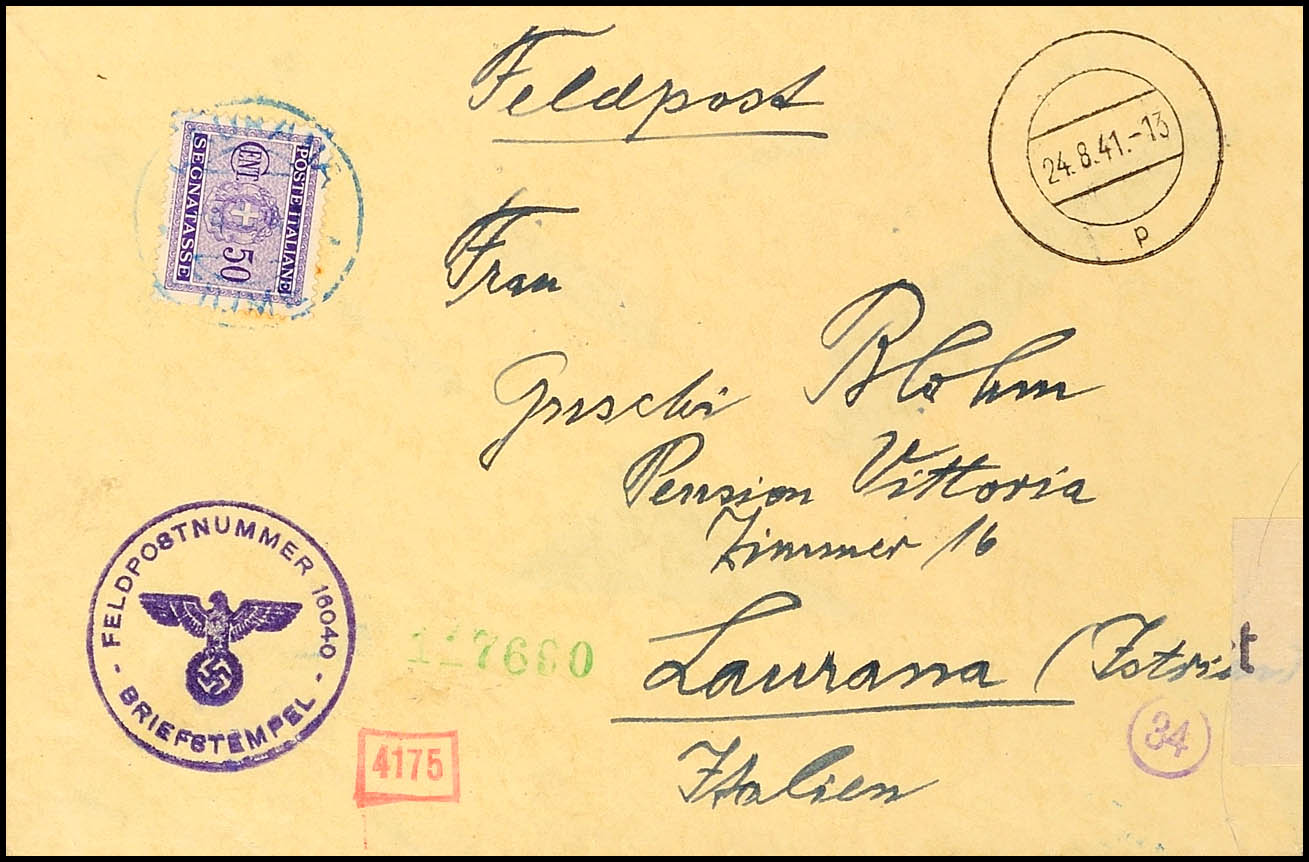 Feldpost
24.8.41.-13
p
POSTE ITALIANE
CENT 50
SEGNATASSE
Frau
Guschi Blohm
Pension Vittoria
Zimmer 16
Laurana (Istrien)
Italien
- FELDPOSTNUMMER 16040 -
BRIEFSTEMPEL
7660
4175
34
t